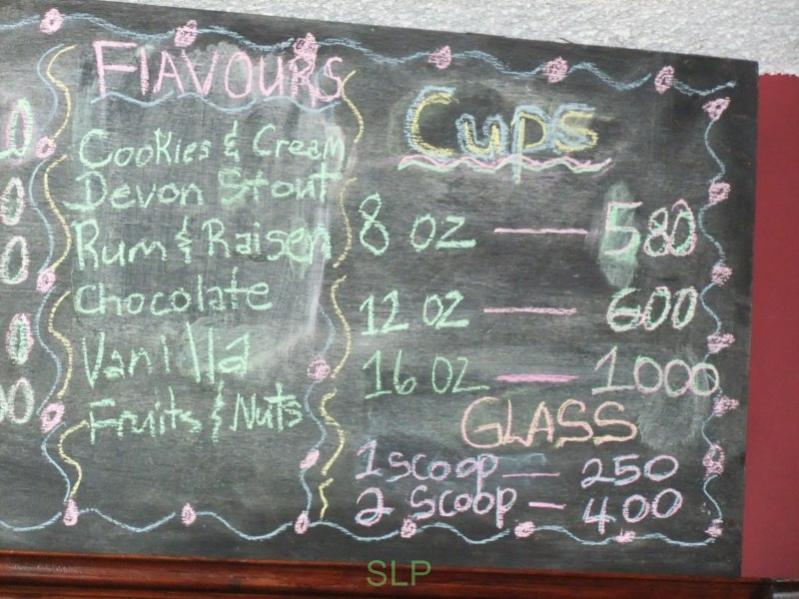 FLAVOURS
Cookies & Cream
Devon Stout
Rum & Raisen
Chocolate
Vanilla
Fruits & Nuts
Cups
8 OZ — 580
12 OZ — 600
16 OZ — 1000
GLASS
1 scoop — 250
2 Scoop — 400
SLP